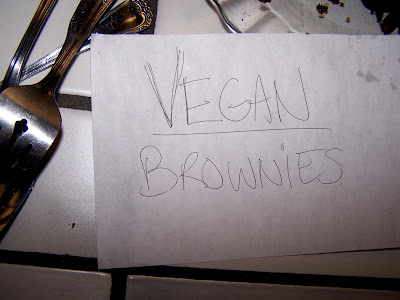 VEGAN
BROWNiES